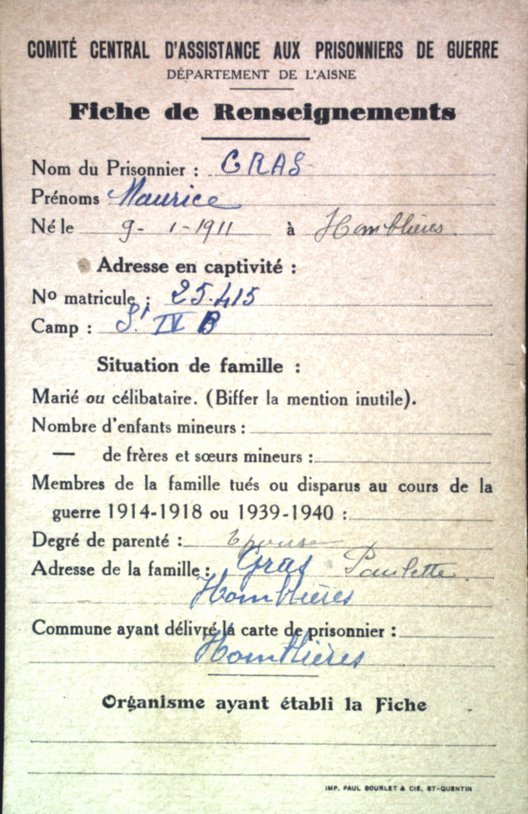 COMITÉ CENTRAL D'ASSISTANCE AUX PRISONNIERS DE GUERRE
DÉPARTEMENT DE L'AISNE
Fiche de Renseignements
Nom du Prisonnier : GRAS
Prénoms Maurice
Né le 9-1-1911 à Homblières.
Adresse en captivité :
No matricule : 25.415
Camp : St IV B
Situation de famille :
Marié ou célibataire. (Biffer la mention inutile).
Nombre d'enfants mineurs :
— de frères et sœurs mineurs :
Membres de la famille tués ou disparus au cours de la
guerre 1914-1918 ou 1939-1940 :
Degré de parenté : Epouse
Adresse de la famille : Gras Paulette.
Homblières
Commune ayant délivré la carte de prisonnier :
Homblières
Organisme ayant établi la Fiche
IMP. PAUL BOURLET & CIE, ST-QUENTIN